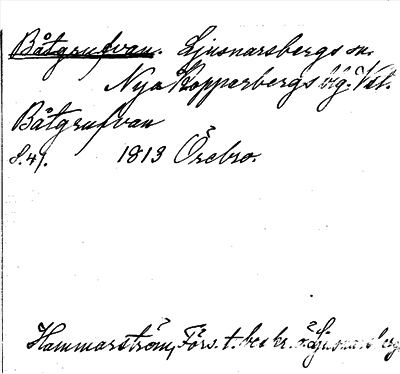 Båtgrufvan. Ljusnarsbergs sn.
Nya Kopparbergs bg. Vstl.
Båtgrufvan
s. 41. 1813 Örebro.
Hammarström, Förs. t. beskr. ö. Ljusnarsberg